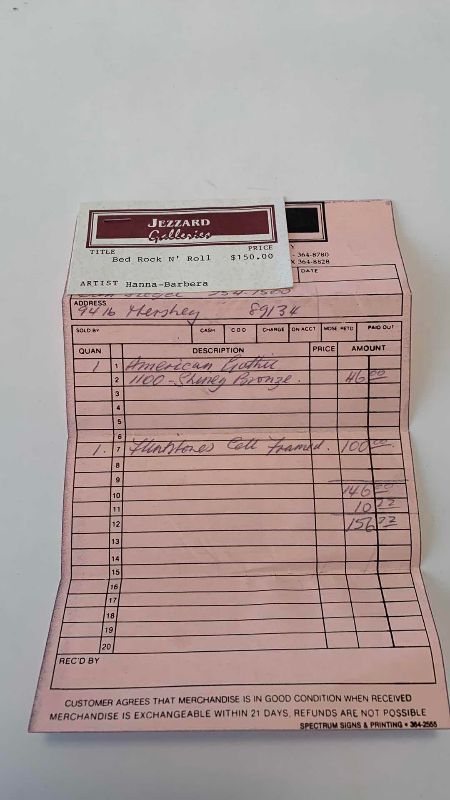 JEZZARD
Galleries
TITLE PRICE
Bed Rock N' Roll $150.00
ARTIST Hanna-Barbera
- 364-8780
X 364-8828
DATE
ADDRESS
9416 Hershey 89134
SOLD BY CASH C.O.D. CHARGE ON ACCT. MDSE. RETD. PAID OUT
QUAN. DESCRIPTION PRICE AMOUNT
1 1 American Gothic
2 1100 - Shiney Bronze. 46 00
3
4
5
6
1. 7 Flintstones Cell Framed. 100 00
8
9
10 146 00
11 10 22
12 156 22
13
14
15
16
17
18
19
20
REC'D BY
CUSTOMER AGREES THAT MERCHANDISE IS IN GOOD CONDITION WHEN RECEIVED
MERCHANDISE IS EXCHANGEABLE WITHIN 21 DAYS. REFUNDS ARE NOT POSSIBLE
SPECTRUM SIGNS & PRINTING • 364-2555